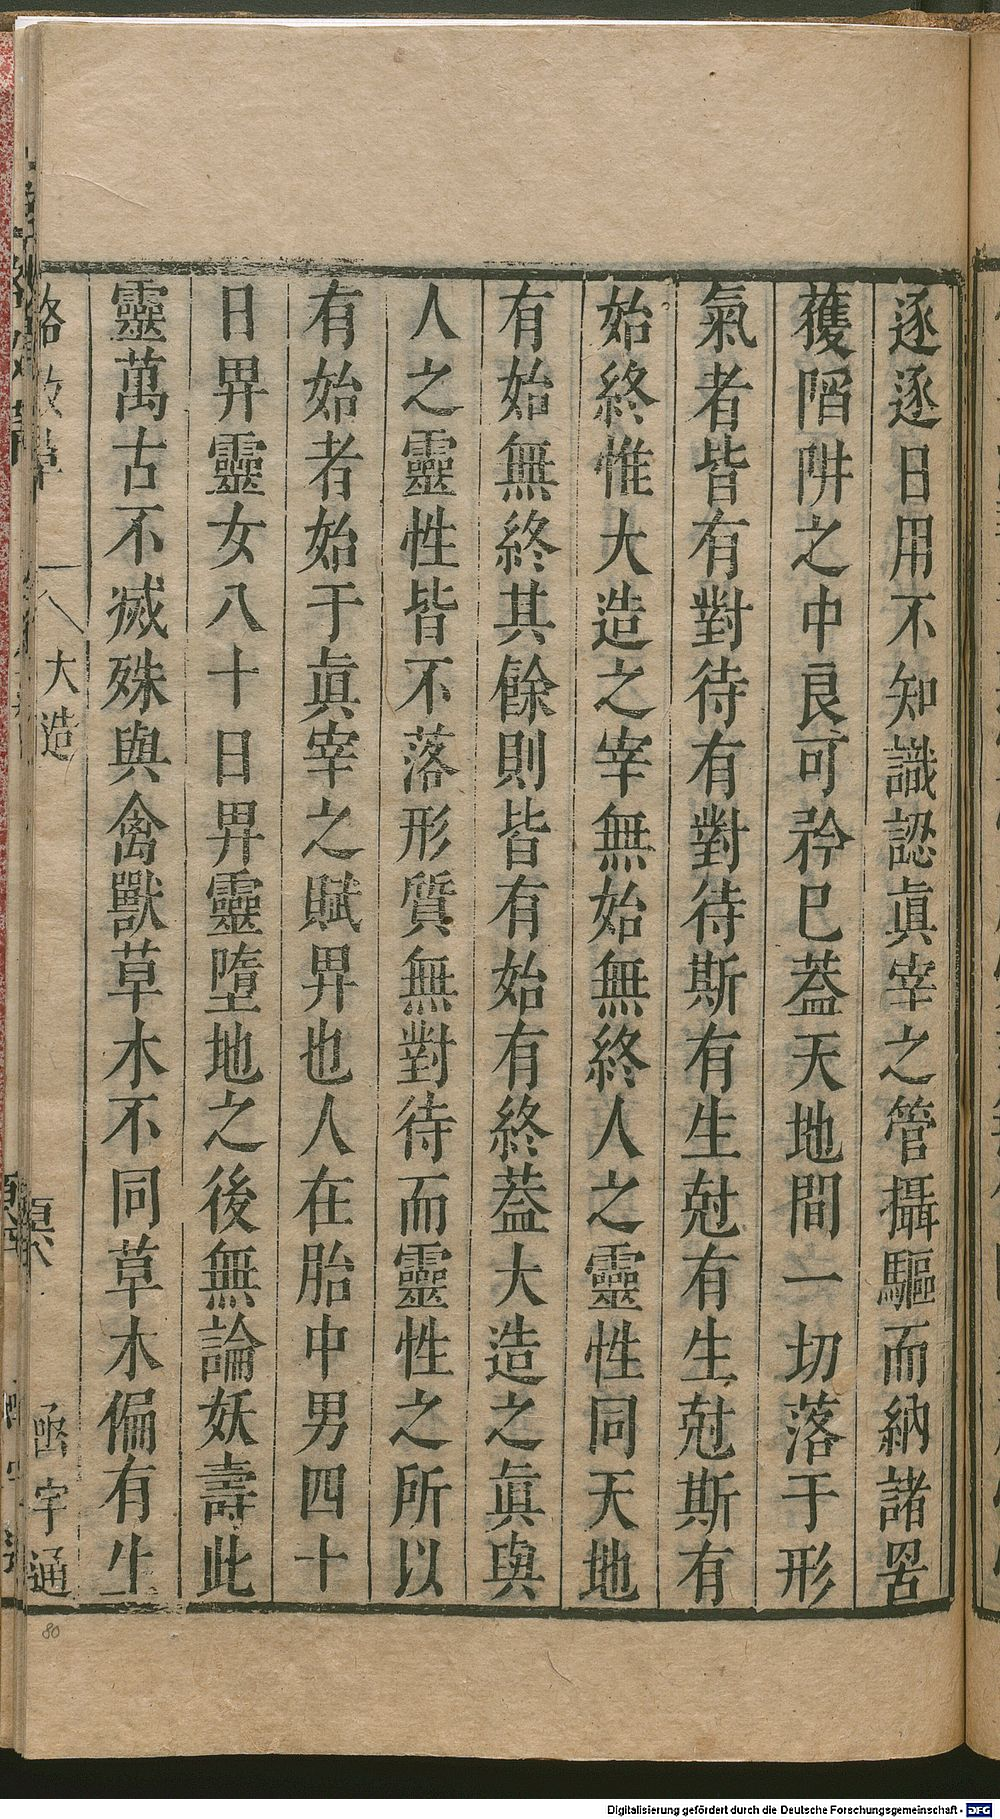 逐逐日用不知識認眞宰之管攝驅而納諸罟
獲陷阱之中良可矜巳葢天地間一切落于形
氣者皆有對待有對待斯有生尅有生尅斯有
始終惟大造之宰無始無終人之靈性同天地
有始無終其餘則皆有始有終葢大造之眞與
人之靈性皆不落形質無對待而靈性之所以
有始者始于眞宰之賦畀也人在胎中男四十
日畀靈女八十日畀靈墮地之後無論妖壽此
靈萬古不滅殊與禽獸草木不同草木偏有生
大造
函宇通
80
Digitalisierung gefördert durch die Deutsche Forschungsgemeinschaft - DFG